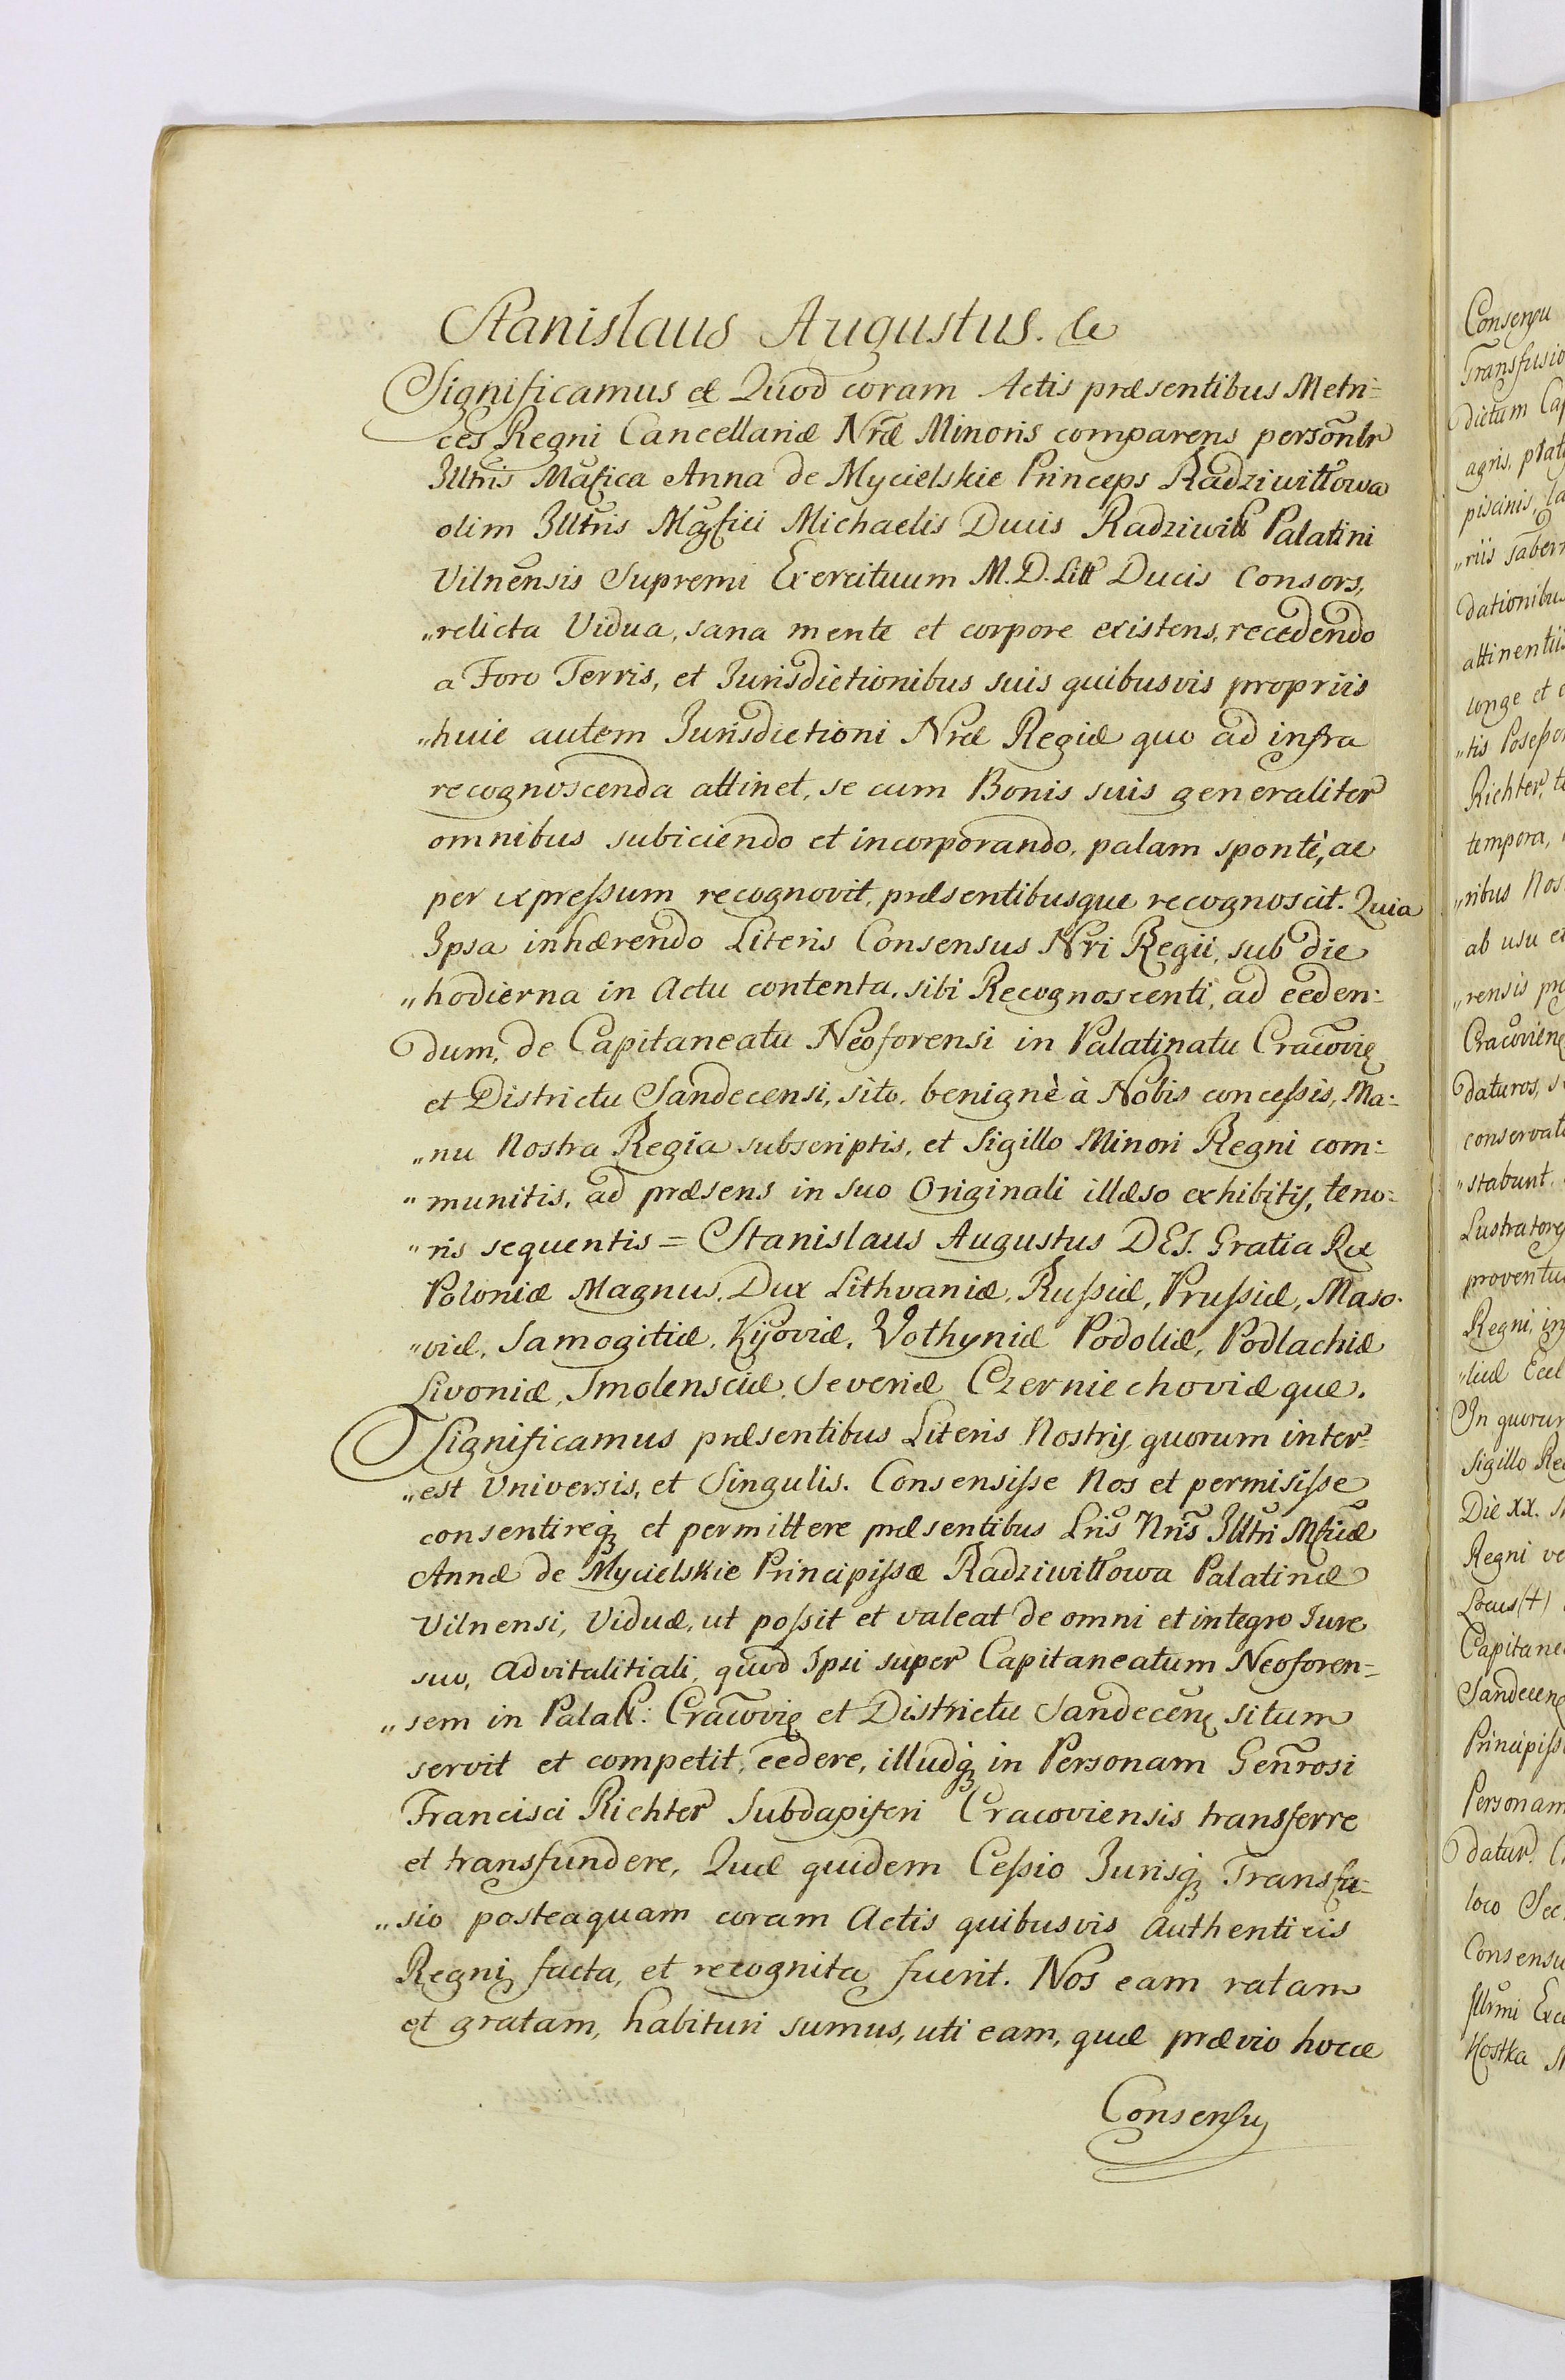 Stanislaus Augustus. &c
Significamus &c Quod coram Actis præsentibus Metri-
ces Regni Cancellariæ Nræ Minoris comparens personlr
Illtris Mgfica Anna de Mycielskie Princeps Radziwiłłowa
olim Illtris Mgfici Michaelis Ducis Radziwiłł Palatini
Vilnensis Supremi Exercituum M. D. Litt Ducis Consors,
„relicta Vidua, sana mente et corpore existens, recedendo
a Foro Terris, et Jurisdictionibus suis quibusvis propriis
„huic autem Jurisdictioni Nræ Regiæ quo ad infra
recognoscenda attinet, se cum Bonis suis generaliter
omnibus subiciendo et incorporando, palam spontè, ac
per expreſsum recognovit, præsentibusque recognoscit. Quia
Ipsa inhærendo Literis Consensus Nri Regii, sub die
„hodierna in Actu contenta, sibi Recognoscenti, ad ceden:
dum, de Capitaneatu Neoforensi in Palatinatu Cracovię
et Districtu Sandecensi, sito, benignè à Nobis conceſsis, Ma:
„nu Nostra Regia subscriptis, et Sigillo Minori Regni com:
„munitis, ad præsens in suo Originali illæso exhibitis, teno:
„ris sequentis = Stanislaus Augustus DEI. Gratia Rex
Poloniæ Magnus, Dux Lithvaniæ, Ruſsiæ, Pruſsiæ, Maso.
„viæ, Samogitiæ, Kijoviæ, Volhyniæ Podoliæ, Podlachiæ
Livoniæ, Smolensciæ Severiæ Czerniechoviæque.
Significamus præsentibus Literis Nostris quorum inter-
„est Universis, et Singulis. Consensiſse Nos et permisiſse
consentireq; et permittere præsentibus Lris Nris Illtri Mficæ
Annæ de Mycielskie Principiſsæ Radziwiłłowa Palatinæ
Vilnensi, Viduæ, ut poſsit et valeat de omni et integro Jure
suo, advitalitiali, quod Ipsi super Capitaneatum Neoforen=
„sem in Palatt: Cracovię et Districtu Sandecen situm
servit et competit, cedere, illudq; in Personam Genrosi
Francisci Richter Subdapiferi Cracoviensis transferre
et transfundere, Quæ quidem Ceſsio Jurisq; Transfu=
„sio posteaquam coram Actis quibusvis Authenticis
Regni facta, et recognita fuerit. Nos eam ratam
et gratam, habituri sumus, uti eam, quæ prævio hocce
Consensu
Consensu
Transfusio
dictum Cap
agris, prat
piscinis, la
„riis tabern
dationibus
attinentiis
longe et
„tis Poseſso
Richter, t
tempora,
„ribus Nos
ab usu et
„rensis pro
Cracovien
daturos, s
conservat
„stabunt.
Lustratores
proventu
Regni, in
In quorum
Sigillo Re
Die XX.
Regni ve
Locus (+)
Capitane
Sandecen
Principiſs
Personam
datur.
loco Sec
Consensu
Hostka